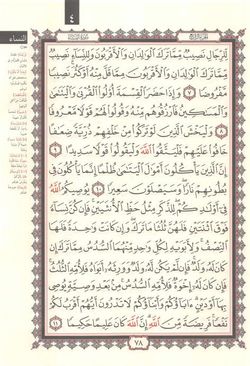 ٤
النساء
لِّلرِّجَالِ نَصِيبٌ مِّمَّا تَرَكَ الْوَالِدَانِ وَالْأَقْرَبُونَ وَلِلنِّسَاءِ نَصِيبٌ
مِّمَّا تَرَكَ الْوَالِدَانِ وَالْأَقْرَبُونَ مِمَّا قَلَّ مِنْهُ أَوْ كَثُرَ نَصِيبًا
مَّفْرُوضًا ٧ وَإِذَا حَضَرَ الْقِسْمَةَ أُولُوا الْقُرْبَىٰ وَالْيَتَامَىٰ
وَالْمَسَاكِينُ فَارْزُقُوهُم مِّنْهُ وَقُولُوا لَهُمْ قَوْلًا مَّعْرُوفًا
٨ وَلْيَخْشَ الَّذِينَ لَوْ تَرَكُوا مِنْ خَلْفِهِمْ ذُرِّيَّةً ضِعَافًا
خَافُوا عَلَيْهِمْ فَلْيَتَّقُوا اللَّهَ وَلْيَقُولُوا قَوْلًا سَدِيدًا ٩
إِنَّ الَّذِينَ يَأْكُلُونَ أَمْوَالَ الْيَتَامَىٰ ظُلْمًا إِنَّمَا يَأْكُلُونَ فِي
بُطُونِهِمْ نَارًا وَسَيَصْلَوْنَ سَعِيرًا ١٠ يُوصِيكُمُ اللَّهُ
فِي أَوْلَادِكُمْ لِلذَّكَرِ مِثْلُ حَظِّ الْأُنثَيَيْنِ فَإِن كُنَّ نِسَاءً
فَوْقَ اثْنَتَيْنِ فَلَهُنَّ ثُلُثَا مَا تَرَكَ وَإِن كَانَتْ وَاحِدَةً فَلَهَا
النِّصْفُ وَلِأَبَوَيْهِ لِكُلِّ وَاحِدٍ مِّنْهُمَا السُّدُسُ مِمَّا تَرَكَ إِن
كَانَ لَهُ وَلَدٌ فَإِن لَّمْ يَكُن لَّهُ وَلَدٌ وَوَرِثَهُ أَبَوَاهُ فَلِأُمِّهِ الثُّلُثُ
فَإِن كَانَ لَهُ إِخْوَةٌ فَلِأُمِّهِ السُّدُسُ مِن بَعْدِ وَصِيَّةٍ يُوصِي
بِهَا أَوْ دَيْنٍ آبَاؤُكُمْ وَأَبْنَاؤُكُمْ لَا تَدْرُونَ أَيُّهُمْ أَقْرَبُ لَكُمْ
نَفْعًا فَرِيضَةً مِّنَ اللَّهِ إِنَّ اللَّهَ كَانَ عَلِيمًا حَكِيمًا ١١
٧٨